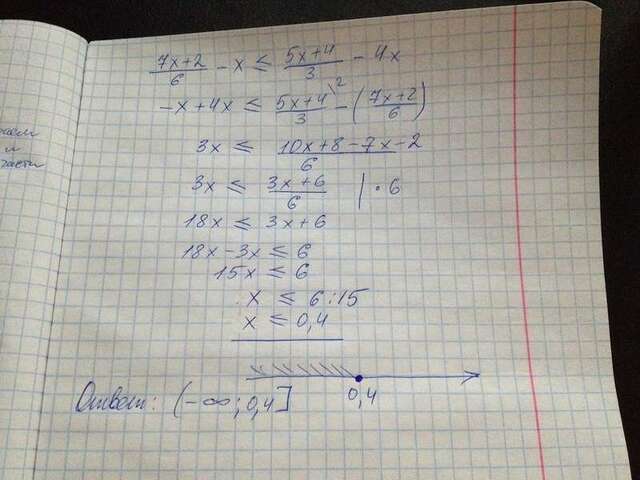 (7x+2)/6 - x ≤ (5x+4)/3 - 4x
-x+4x ≤ (5x+4)/3 \2 - ((7x+2)/6)
3x ≤ (10x+8-7x-2)/6
3x ≤ (3x+6)/6 | · 6
18x ≤ 3x+6
18x-3x ≤ 6
15x ≤ 6
x ≤ 6:15
x ≤ 0,4
0,4
Ответ: (-∞; 0,4]
и
части